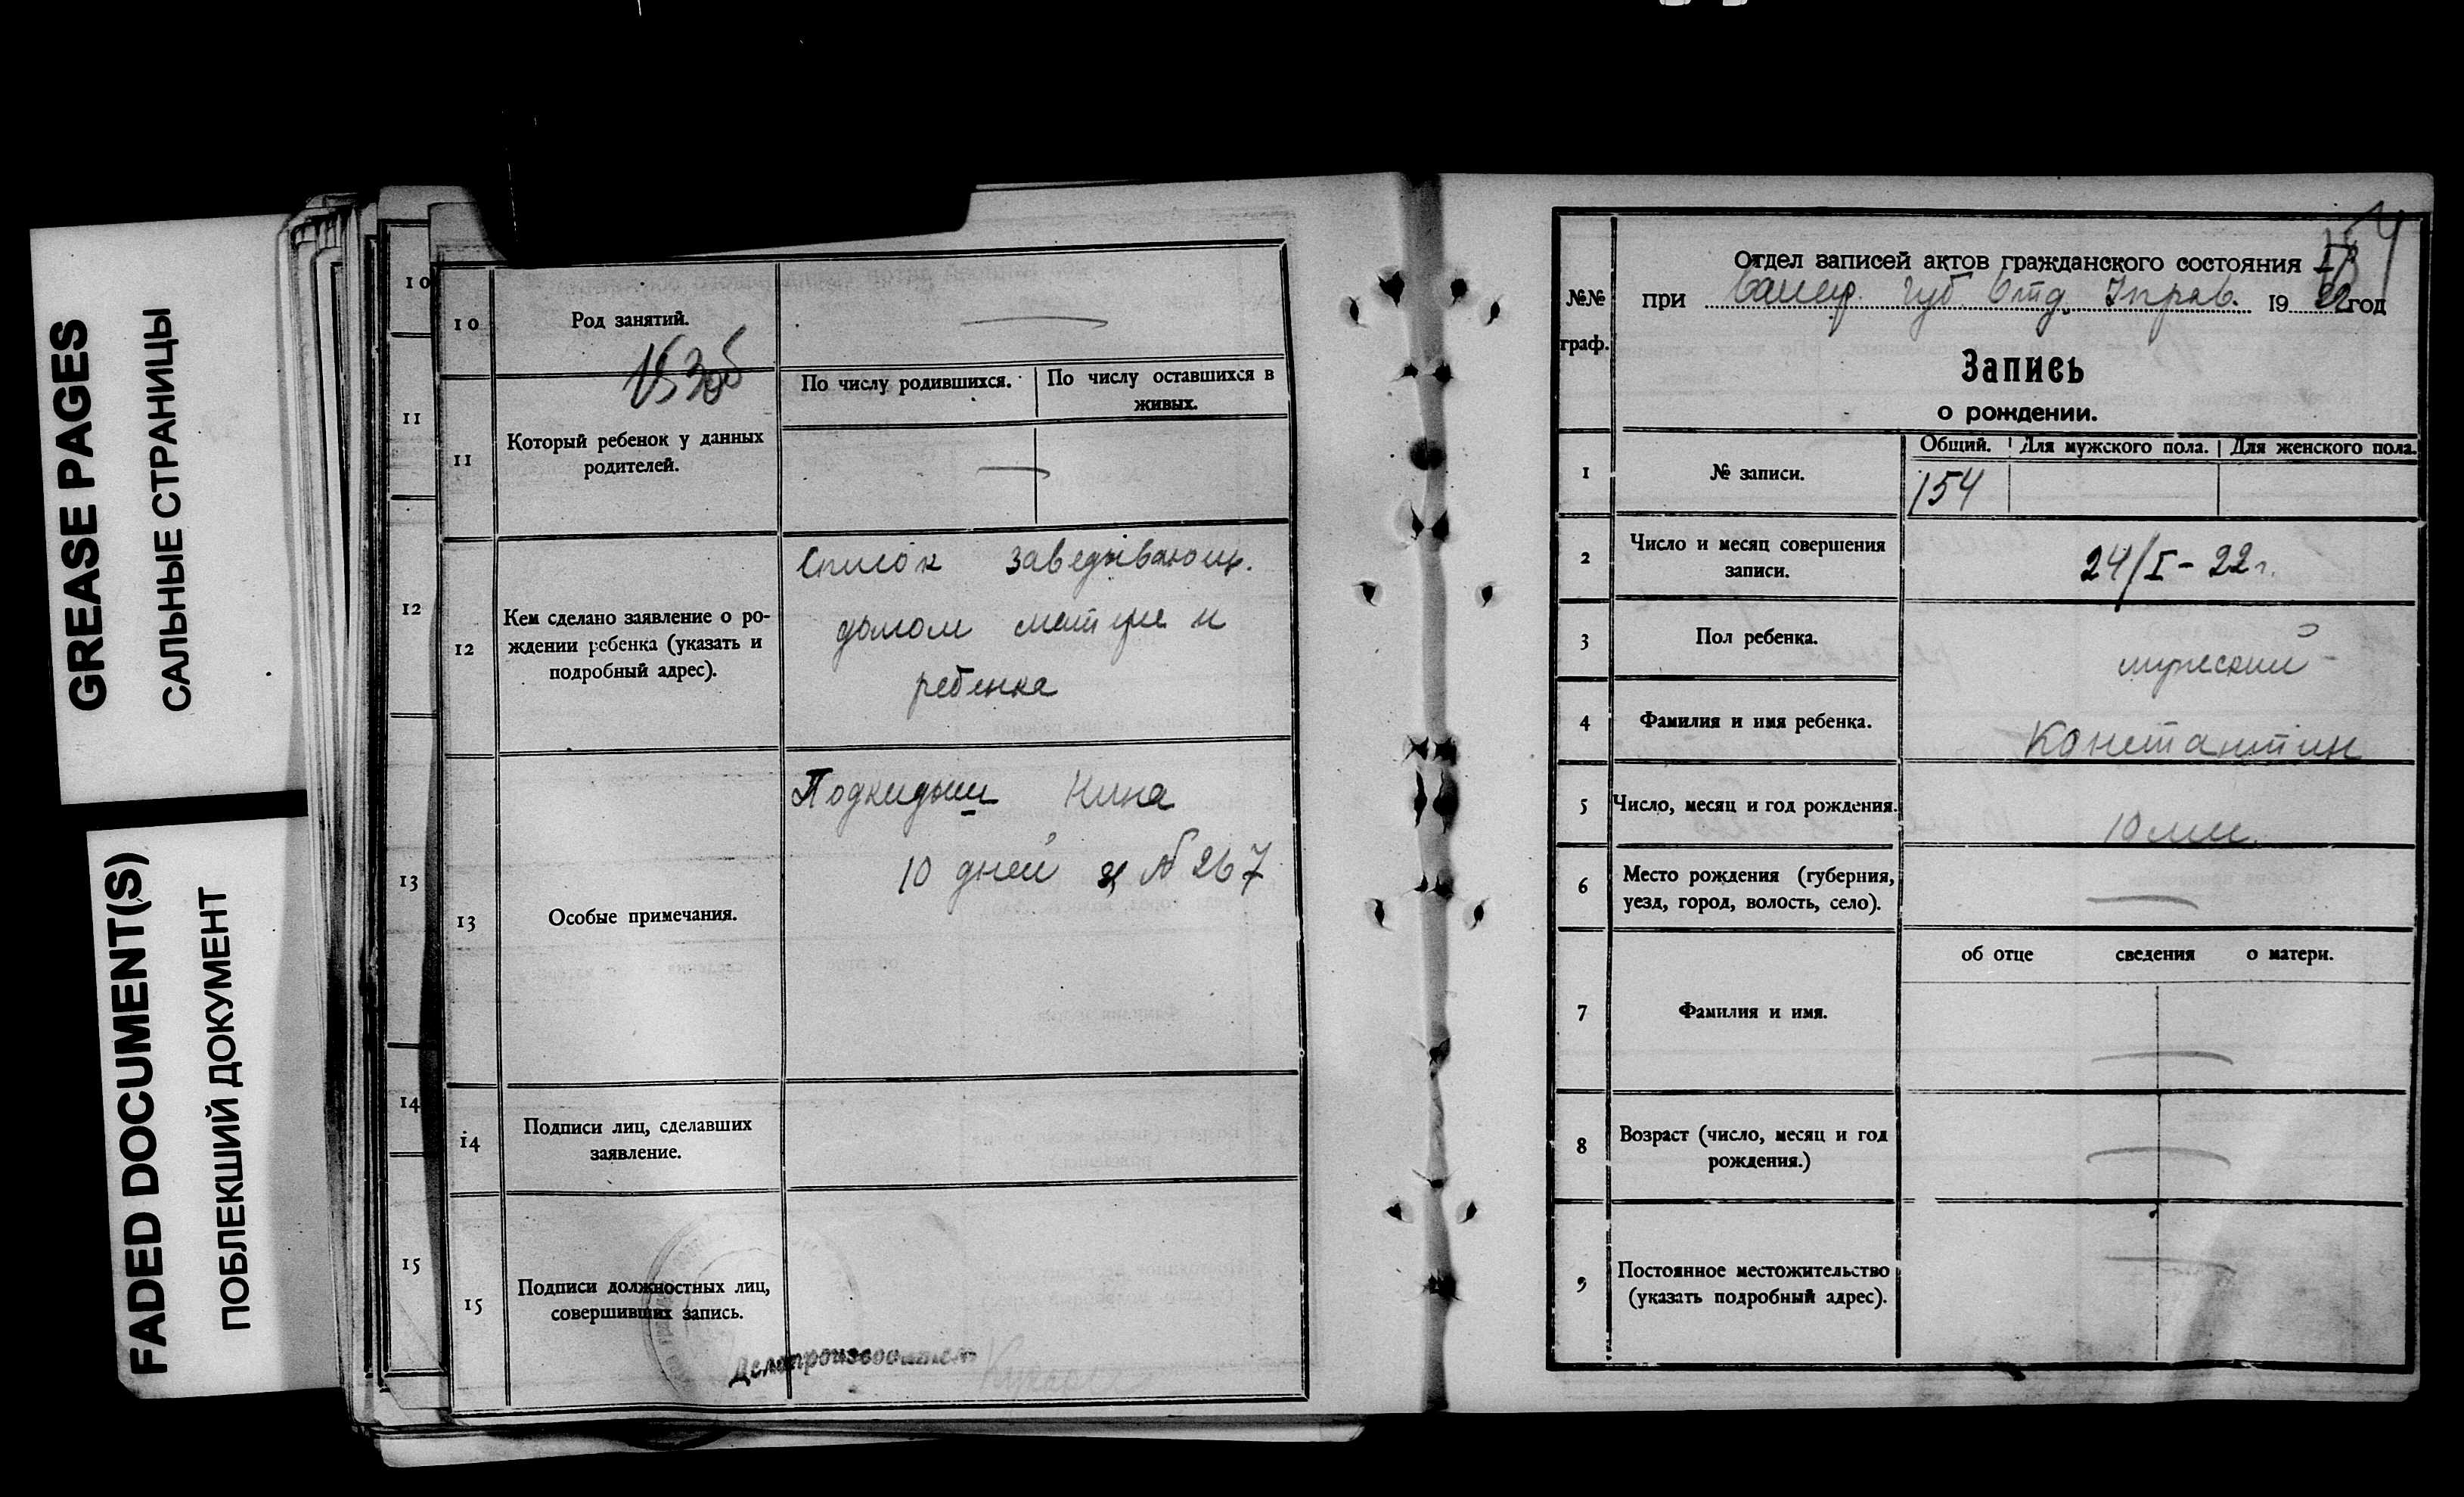 GREASE PAGES
САЛЬНЫЕ СТРАНИЦЫ
FADED DOCUMENT(S)
ПОБЛЕКШИЙ ДОКУМЕНТ
10
11
12
13
14
15
10
Род занятий.
11
Который ребенок у данных
родителей.
По числу родившихся.
По числу оставшихся в
живых.
12
Кем сделано заявление о ро-
ждении ребенка (указать и
подробный адрес).
Список заведывающ.
домом матери и
ребенка
13
Особые примечания.
Подкидыш Нина
10 дней № 267
14
Подписи лиц, сделавших
заявление.
15
Подписи должностных лиц,
совершивших запись.
Делопроизводитель
№№
граф.
Отдел записей актов гражданского состояния
при Самар. Губ. Отд. Управ. 1922 год
Запись
о рождении.
1
№ записи.
Общий.
Для мужского пола.
Для женского пола.
154
2
Число и месяц совершения
записи.
24/I - 22 г.
3
Пол ребенка.
мужской
4
Фамилия и имя ребенка.
Константин
5
Число, месяц и год рождения.
10 м.
6
Место рождения (губерния,
уезд, город, волость, село).
об отце сведения о матери.
7
Фамилия и имя.
8
Возраст (число, месяц и год
рождения.)
9
Постоянное местожительство
(указать подробный адрес).